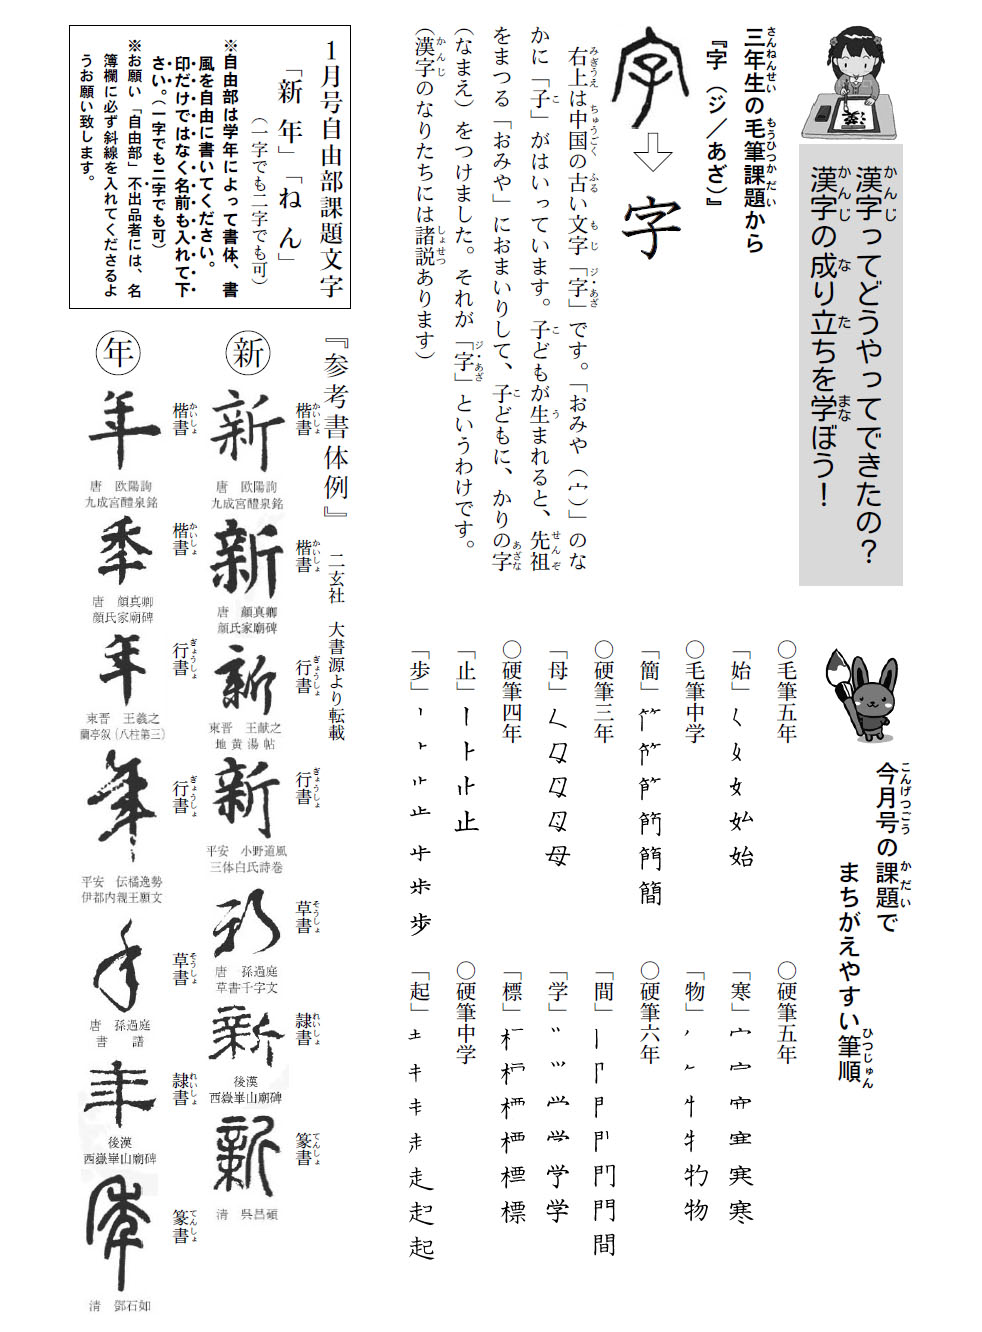 漢字ってどうやってできたの？
漢字の成り立ちを学ぼう！
三年生の毛筆課題から
『字（ジ／あざ）』
字
字
右上は中国の古い文字「字」です。「おみや（宀）」のな
かに「子」がはいっています。子どもが生まれると、先祖
をまつる「おみや」におまいりして、子どもに、かりの字
（なまえ）をつけました。それが「字」というわけです。
（漢字のなりたちには諸説あります）
１月号自由部課題文字
「新年」「ねん」
（一字でも二字でも可）
※自由部は学年によって書体、書
風を自由に書いてください。
印だけではなく名前も入れて下
さい。（一字でも二字でも可）
※お願い「自由部」不出品者には、名
簿欄に必ず斜線を入れてくださるよ
うお願い致します。
今月号の課題で
まちがえやすい筆順
○毛筆五年
「始」
○毛筆中学
「簡」
○硬筆三年
「母」
○硬筆四年
「止」
「歩」
○硬筆五年
「寒」
「物」
○硬筆六年
「間」
「学」
「標」
○硬筆中学
「起」
『参考書体例』
二玄社　大書源より転載
新
楷書
新
唐　欧陽詢
九成宮醴泉銘
楷書
新
唐　顔真卿
顔氏家廟碑
行書
新
東晋　王献之
地黄湯帖
行書
新
平安　小野道風
三体白氏詩巻
草書
新
唐　孫過庭
草書千字文
隷書
新
後漢
西嶽崋山廟碑
篆書
新
清　呉昌碩
年
楷書
年
唐　欧陽詢
九成宮醴泉銘
楷書
年
唐　顔真卿
顔氏家廟碑
行書
年
東晋　王羲之
蘭亭叙（八柱第三）
行書
年
平安　伝橘逸勢
伊都内親王願文
草書
年
唐　孫過庭
書　譜
隷書
年
後漢
西嶽崋山廟碑
篆書
年
清　鄧石如